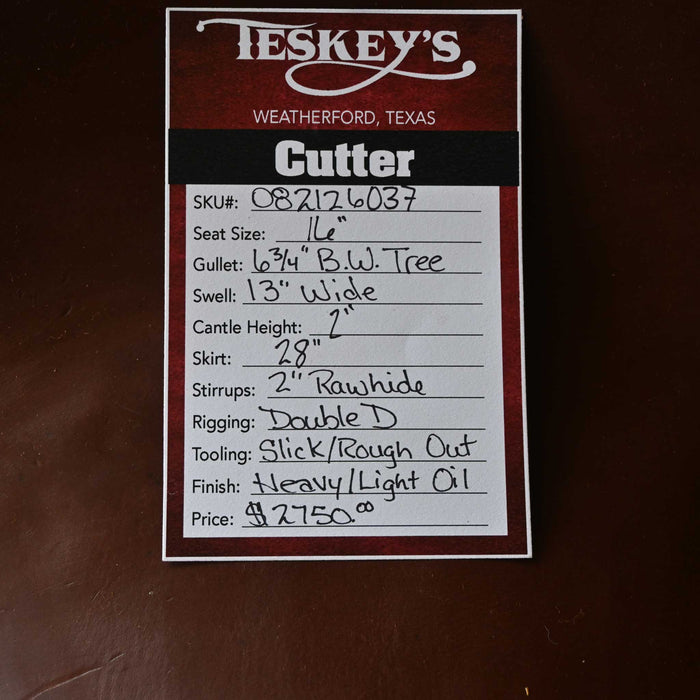 TESKEY'S
WEATHERFORD, TEXAS
Cutter
SKU#: 082126037
Seat Size: 16"
Gullet: 6 3/4" B.W. Tree
Swell: 13" Wide
Cantle Height: 2"
Skirt: 28"
Stirrups: 2" Rawhide
Rigging: Double D
Tooling: Slick/Rough Out
Finish: Heavy/Light Oil
Price: $2750.00